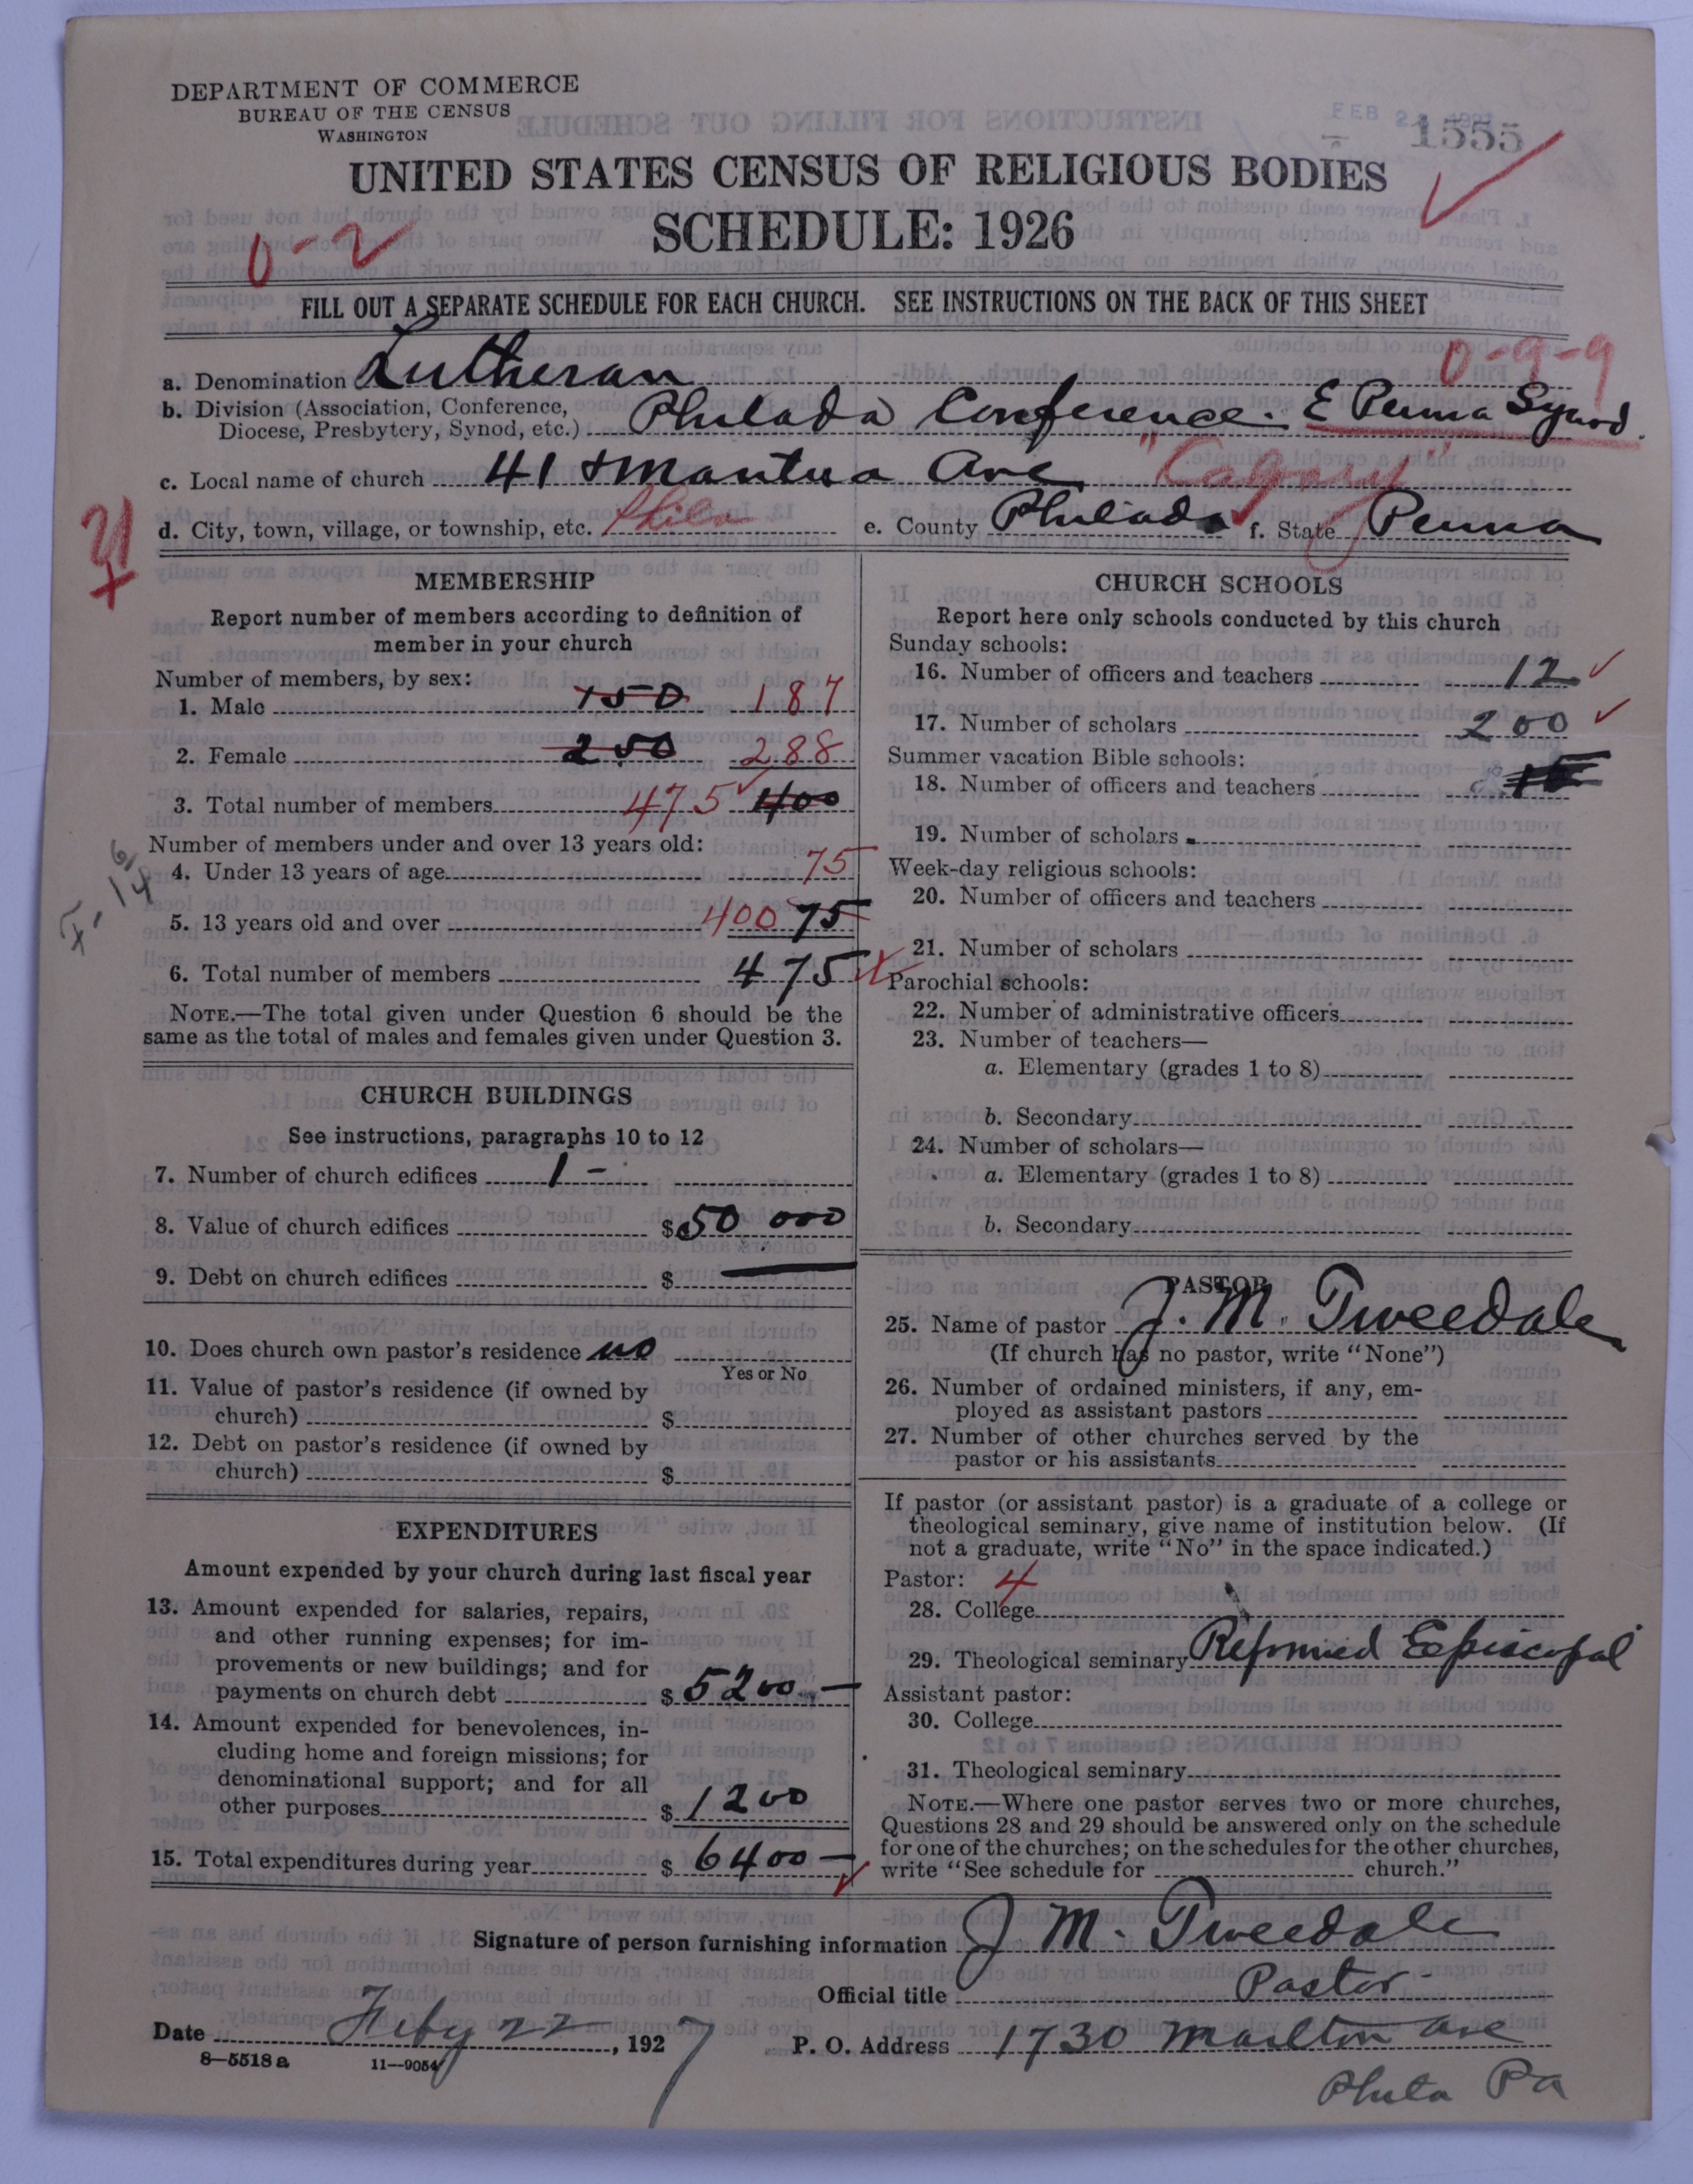 DEPARTMENT OF COMMERCE
BUREAU OF THE CENSUS
WASHINGTON
FEB 2
1555
UNITED STATES CENSUS OF RELIGIOUS BODIES
SCHEDULE: 1926
0-2
FILL OUT A SEPARATE SCHEDULE FOR EACH CHURCH. SEE INSTRUCTIONS ON THE BACK OF THIS SHEET
0-9-9
a. Denomination Lutheran
b. Division (Association, Conference, Diocese, Presbytery, Synod, etc.) Philada Conference. E Penna Synod.
c. Local name of church 41 & Mantua Ave "Calgary"
d. City, town, village, or township, etc. Phila e. County Philada f. State Penna
MEMBERSHIP
Report number of members according to definition of
member in your church
Number of members, by sex:
1. Male 150 187
2. Female 250 288
3. Total number of members 475 400
Number of members under and over 13 years old:
4. Under 13 years of age 75
5. 13 years old and over 400 75
6. Total number of members 475
NOTE.—The total given under Question 6 should be the
same as the total of males and females given under Question 3.
CHURCH BUILDINGS
See instructions, paragraphs 10 to 12
7. Number of church edifices 1 -
8. Value of church edifices $ 50 000
9. Debt on church edifices $ —
10. Does church own pastor's residence no
Yes or No
11. Value of pastor's residence (if owned by
church) $
12. Debt on pastor's residence (if owned by
church) $
EXPENDITURES
Amount expended by your church during last fiscal year
13. Amount expended for salaries, repairs,
and other running expenses; for im-
provements or new buildings; and for
payments on church debt $ 5200 —
14. Amount expended for benevolences, in-
cluding home and foreign missions; for
denominational support; and for all
other purposes $ 1200
15. Total expenditures during year $ 6400 —
CHURCH SCHOOLS
Report here only schools conducted by this church
Sunday schools:
16. Number of officers and teachers 12
17. Number of scholars 200
Summer vacation Bible schools:
18. Number of officers and teachers
19. Number of scholars
Week-day religious schools:
20. Number of officers and teachers
21. Number of scholars
Parochial schools:
22. Number of administrative officers
23. Number of teachers—
a. Elementary (grades 1 to 8)
b. Secondary
24. Number of scholars—
a. Elementary (grades 1 to 8)
b. Secondary
PASTOR
25. Name of pastor J. M. Tweedale
(If church has no pastor, write "None")
26. Number of ordained ministers, if any, em-
ployed as assistant pastors
27. Number of other churches served by the
pastor or his assistants
If pastor (or assistant pastor) is a graduate of a college or
theological seminary, give name of institution below. (If
not a graduate, write "No" in the space indicated.)
Pastor: 4
28. College
29. Theological seminary Reformed Episcopal
Assistant pastor:
30. College
31. Theological seminary
NOTE.—Where one pastor serves two or more churches,
Questions 28 and 29 should be answered only on the schedule
for one of the churches; on the schedules for the other churches,
write "See schedule for church."
Signature of person furnishing information J M. Tweedale
Official title Pastor
Date Feby 22, 1927 P. O. Address 1730 Marlton Ave
Phila Pa
8—5518 a 11—9054